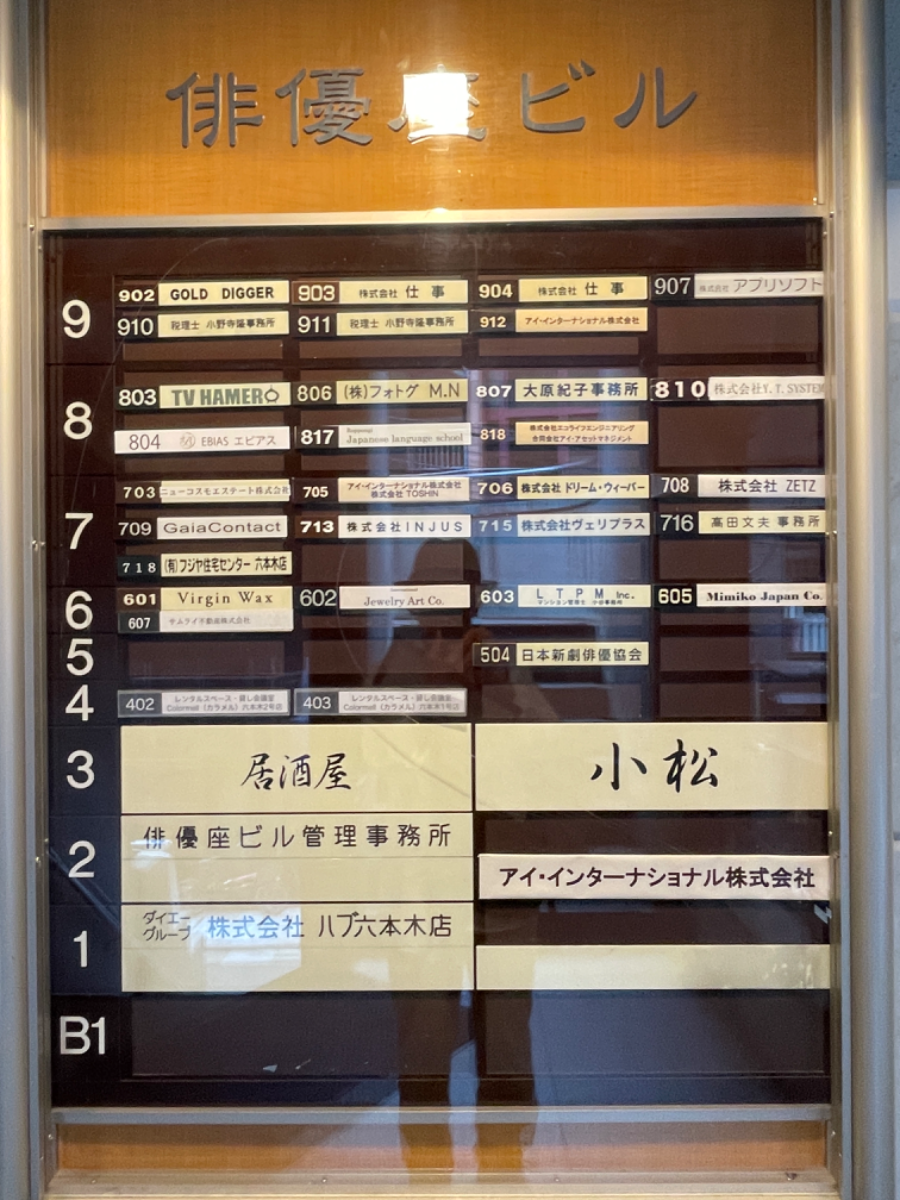 俳優座ビル
9
902 GOLD DIGGER
903 株式会社 仕事
904 株式会社 仕事
907 株式会社 アプリソフト
910 税理士 小野寺隆事務所
911 税理士 小野寺隆事務所
912 アイ・インターナショナル株式会社
8
803 TV HAMERO
806 (株)フォトグ M.N
807 大原紀子事務所
810 株式会社Y.T.SYSTEM
804 EBIAS エビアス
817 Roppongi
Japanese language school
818 株式会社エコライフエンジニアリング
合同会社アイ・アセットマネジメント
7
703 ニューコスモエステート株式会社
705 アイ・インターナショナル株式会社
株式会社 TOSHIN
706 株式会社 ドリーム・ウィーバー
708 株式会社 ZETZ
709 GaiaContact
713 株式会社INJUS
715 株式会社ヴェリプラス
716 髙田文夫 事務所
718 (有)フジヤ住宅センター 六本木店
6
601 Virgin Wax
602 Jewelry Art Co.
603 LTPM Inc.
マンション管理士 小谷事務所
605 Mimiko Japan Co.
607 サムライ不動産株式会社
5
504 日本新劇俳優協会
4
402 レンタルスペース・貸し会議室
Colormell (カラメル) 六本木2号店
403 レンタルスペース・貸し会議室
Colormell (カラメル) 六本木1号店
3
居酒屋 小松
2
俳優座ビル管理事務所
アイ・インターナショナル株式会社
1
ダイエーグループ 株式会社 ハブ六本木店
B1